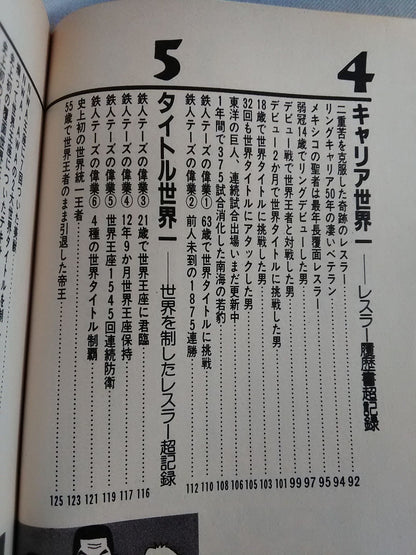 4 キャリア世界一——レスラー履歴書超記録
二重苦を克服した奇跡のレスラー 92
リングキャリア50年の凄いベテラン 94
メキシコの聖者は最年長覆面レスラー 95
弱冠14歳でリングデビューした男 97
デビュー戦で世界王者と対戦した男 99
デビュー2か月で世界タイトルに挑戦した男 101
18歳で世界タイトルに挑戦した男 103
32回も世界タイトルにアタックした男 105
東洋の巨人、連続試合出場いまだ更新中 106
1年間で375試合消化した南海の若豹 108
鉄人テーズの偉業① 63歳で世界タイトルに挑戦 110
鉄人テーズの偉業② 前人未到の1875連勝 112
5 タイトル世界一——世界を制したレスラー超記録
鉄人テーズの偉業③ 21歳で世界王座に君臨 116
鉄人テーズの偉業④ 12年9か月世界王座保持 117
鉄人テーズの偉業⑤ 世界王座1545回連続防衛 119
鉄人テーズの偉業⑥ 4種の世界タイトル制覇 121
史上初の世界統一王者 123
55歳で世界王者のまま引退した帝王 125